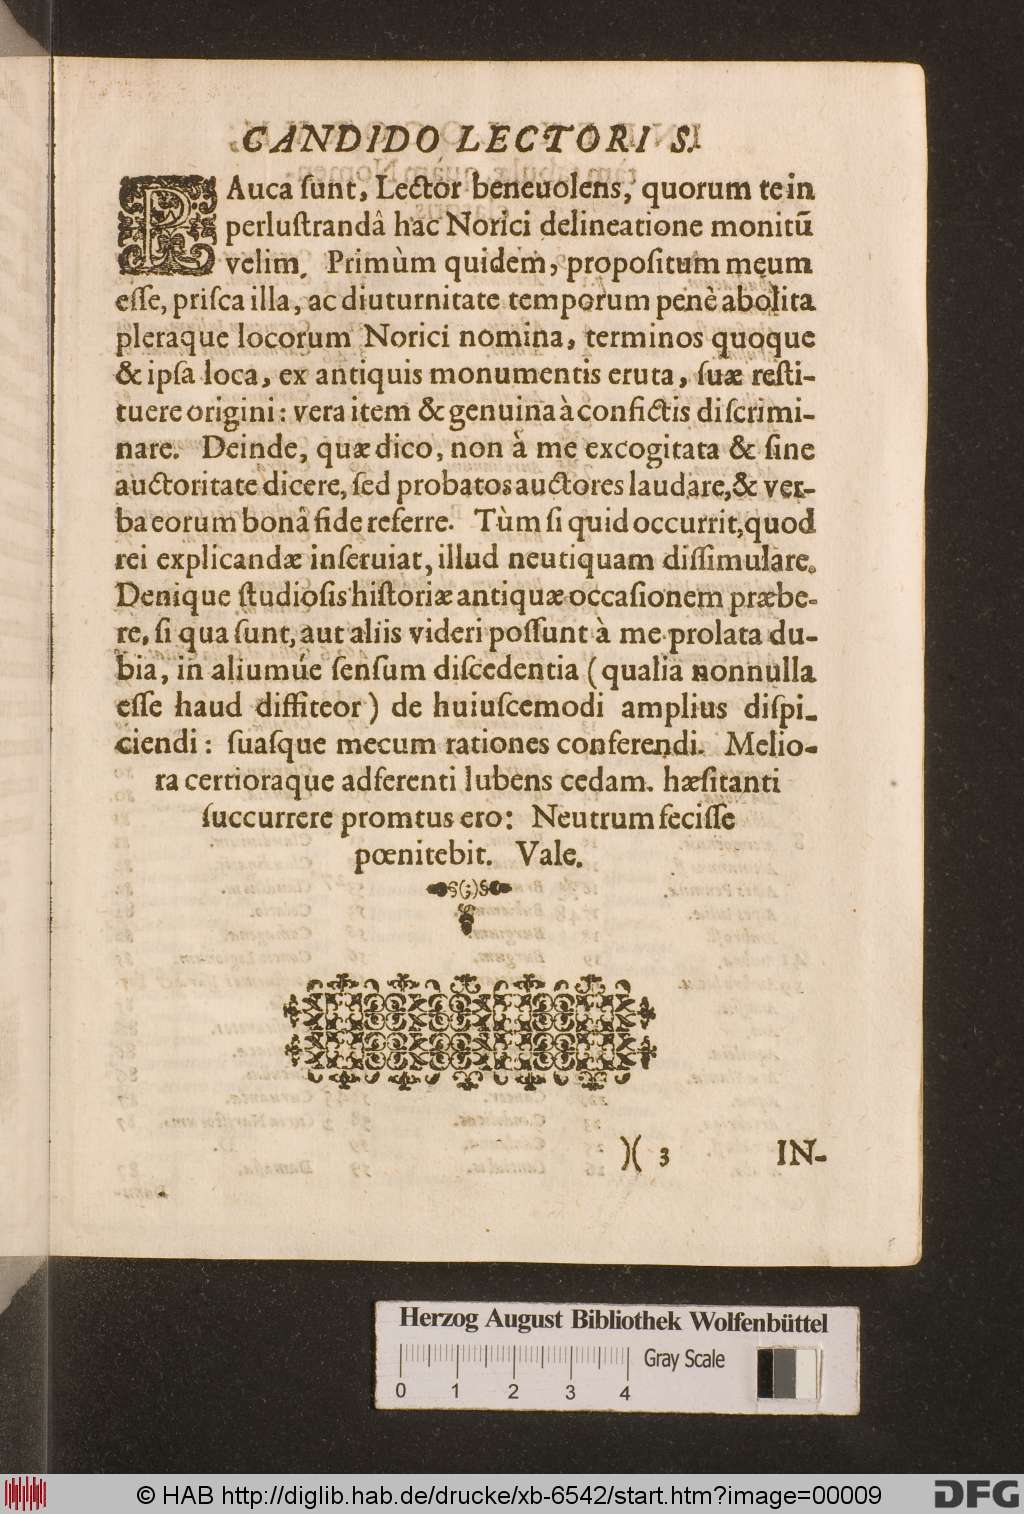 CANDIDO LECTORI S.
PAuca ſunt, Lector beneuolens, quorum te in
perluſtrandâ hac Norici delineatione monitũ
velim. Primùm quidem, propoſitum meum
eſſe, priſca illa, ac diuturnitate temporum penè abolita
pleraque locorum Norici nomina, terminos quoque
& ipſa loca, ex antiquis monumentis eruta, ſuæ reſti-
tuere origini: vera item & genuina à confictis diſcrimi-
nare. Deinde, quæ dico, non à me excogitata & ſine
auctoritate dicere, ſed probatos auctores laudare, & ver-
ba eorum bonâ fide referre. Tùm ſi quid occurrit, quod
rei explicandæ inſeruiat, illud neutiquam diſſimulare.
Denique ſtudioſis hiſtoriæ antiquæ occaſionem præbe-
re, ſi qua ſunt, aut aliis videri poſſunt à me prolata du-
bia, in aliumúe ſenſum diſcedentia (qualia nonnulla
eſſe haud diffiteor) de huiuſcemodi amplius diſpi-
ciendi: ſuaſque mecum rationes conferendi. Melio-
ra certioraque adferenti lubens cedam. hæſitanti
ſuccurrere promtus ero: Neutrum feciſſe
pœnitebit. Vale.
)( 3 IN-
Herzog August Bibliothek Wolfenbüttel
Gray Scale
0 1 2 3 4
© HAB http://diglib.hab.de/drucke/xb-6542/start.htm?image=00009
DFG